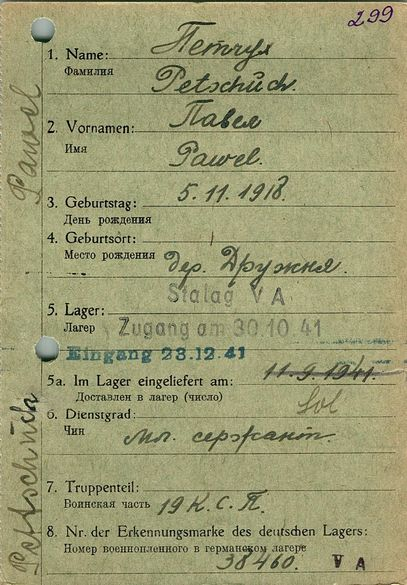 299
1. Name: Петчух
Фамилия Petschuch.
2. Vornamen: Павел
Имя Pawel.
3. Geburtstag: 5.11.1918.
День рождения
4. Geburtsort:
Место рождения дер. Дружня.
Stalag VA
5. Lager:
Лагерь Zugang am 30.10.41
Eingang 23.12.41
5a. Im Lager eingeliefert am: 11.9.1941.
Доставлен в лагерь (число) Sol
6. Dienstgrad:
Чин мл. сержант.
7. Truppenteil:
Воинская часть 19 К.С.П.
8. Nr. der Erkennungsmarke des deutschen Lagers:
Номер военнопленного в германском лагере
38460. VA
Pawel
Petschuch